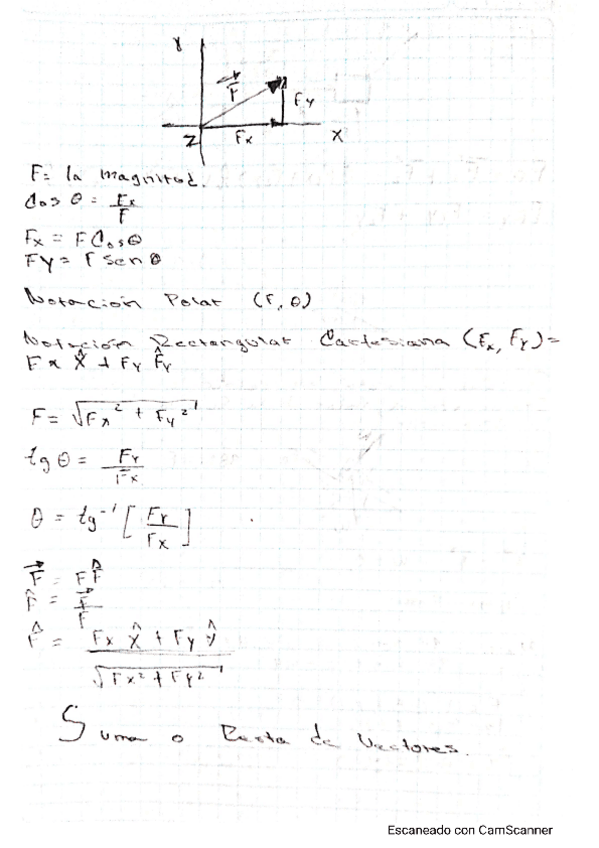 Y
F⃗
Fy
Z
Fx
X
F= la magnitud.
Cos θ = Fx/F
Fx = F Cosθ
Fy = F sen θ
Notación Polar (F, θ)
Notación Rectangular Cartesiana (Fx, Fy) =
Fx X̂ + Fy F̂y
F = √(Fx² + Fy²)
tg θ = Fy/Fx
θ = tg⁻¹ [Fy/Fx]
F⃗ = F F̂
F̂ = F⃗/F
F̂ = (Fx X̂ + Fy ŷ)/√(Fx² + Fy²)
Suma o Resta de Vectores.
Escaneado con CamScanner